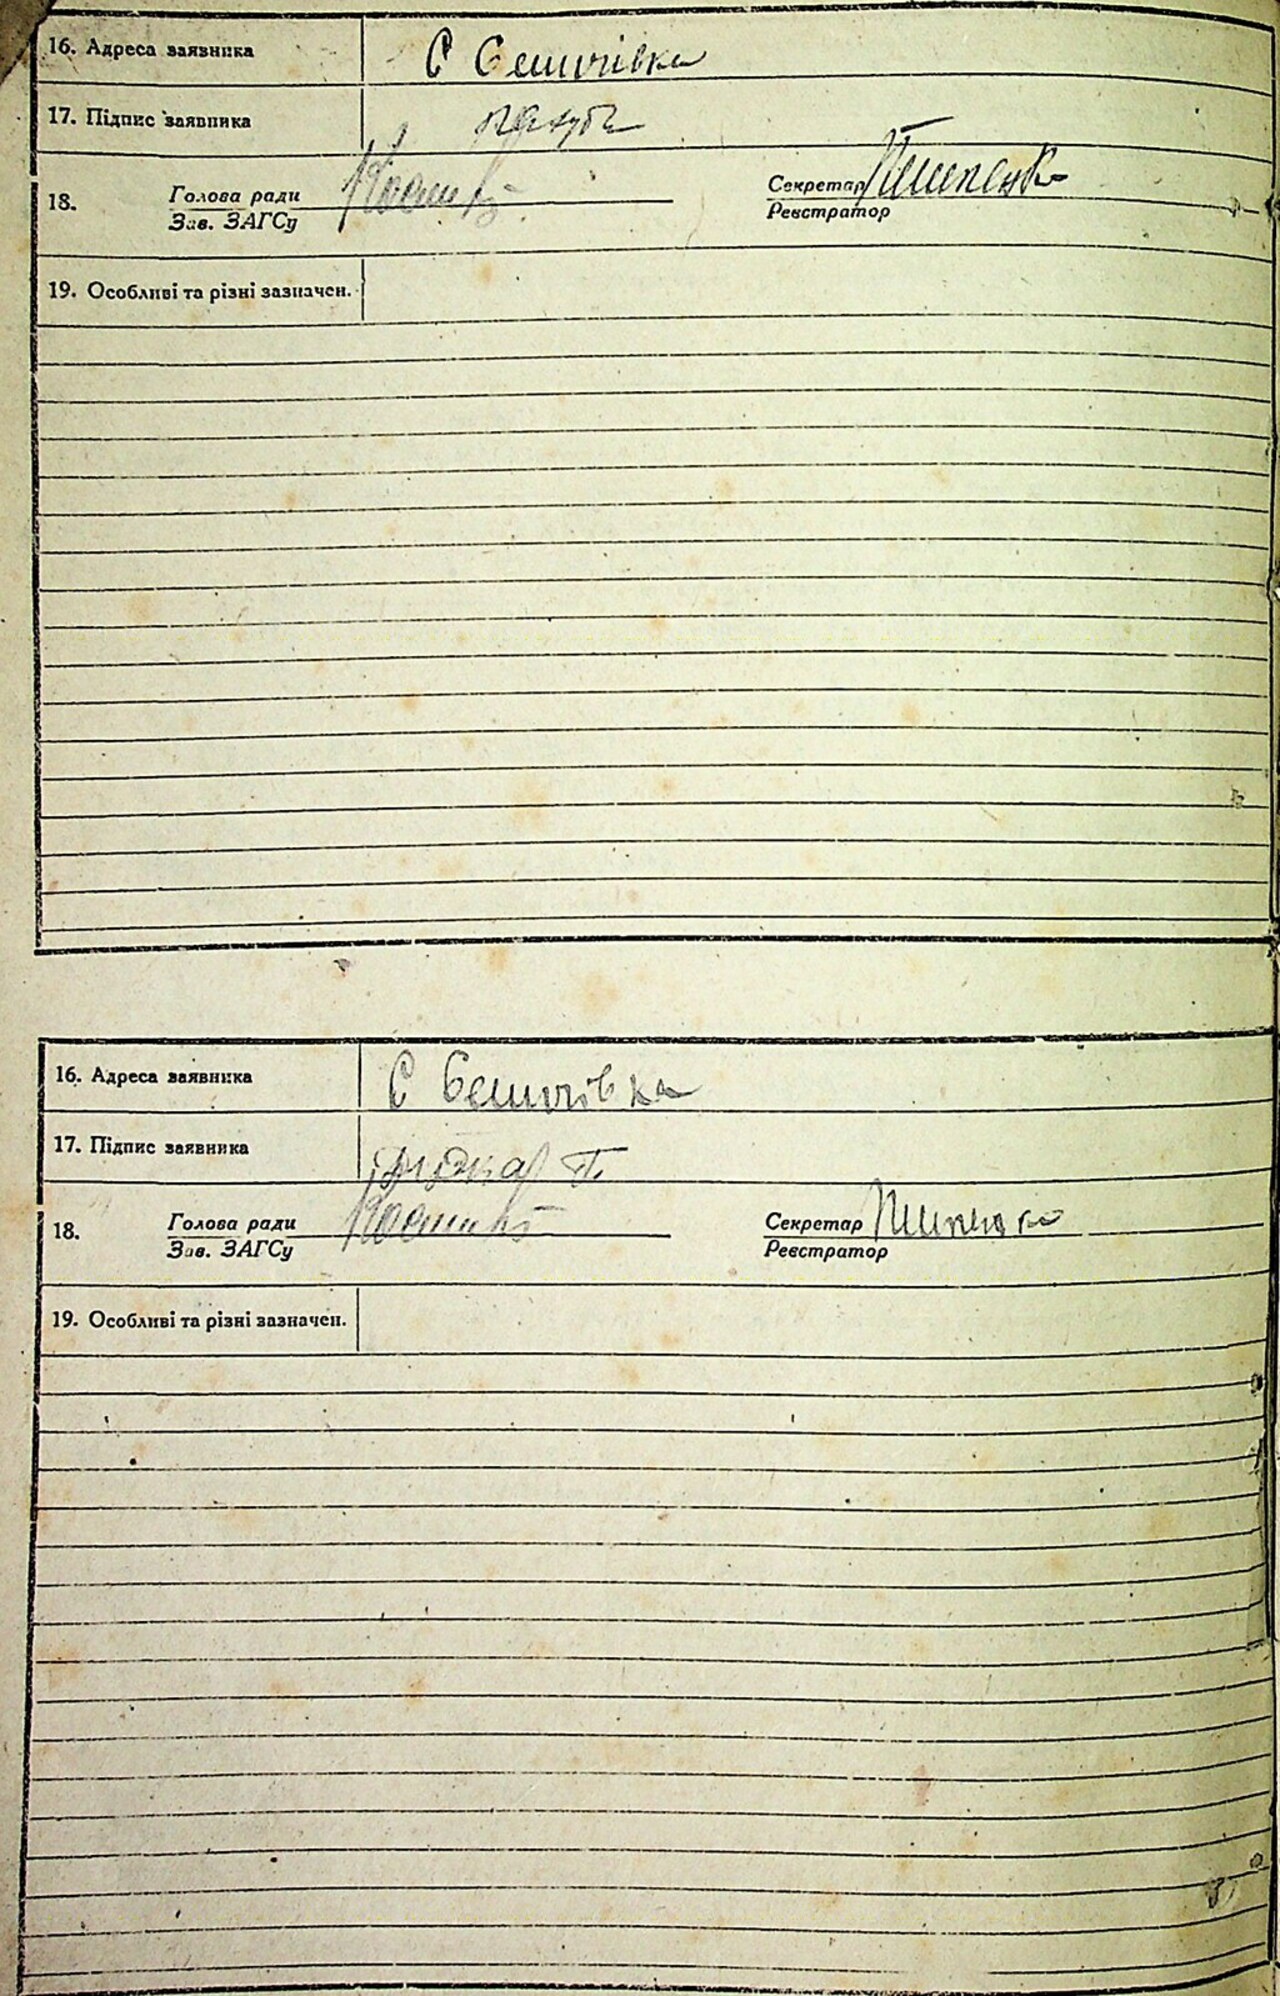 16. Адреса заявника С Семичівка
17. Підпис заявника
18. Голова ради Секретар Пилипенко
Зав. ЗАГСу Реєстратор
19. Особливі та різні зазначен.
16. Адреса заявника С Семичівка
17. Підпис заявника
18. Голова ради Секретар Пилипенко
Зав. ЗАГСу Реєстратор
19. Особливі та різні зазначен.